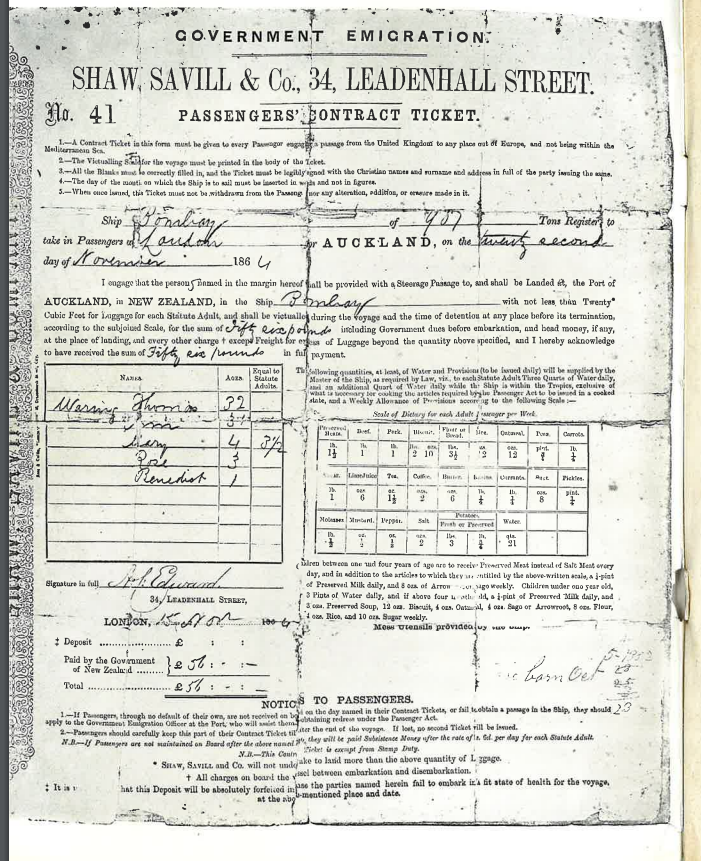 GOVERNMENT EMIGRATION.
SHAW, SAVILL & Co., 34, LEADENHALL STREET.
No. 41 PASSENGERS' CONTRACT TICKET.
1.—A Contract Ticket in this form must be given to every Passenger engaging a passage from the United Kingdom to any place out of Europe, and not being within the
Mediterranean Sea.
2.—The Victualling Scale for the voyage must be printed in the body of the Ticket.
3.—All the Blanks must be correctly filled in, and the Ticket must be legibly signed with the Christian names and surname and address in full of the party issuing the same.
4.—The day of the month on which the Ship is to sail must be inserted in words and not in figures.
5.—When once issued, this Ticket must not be withdrawn from the Passenger nor any alteration, addition, or erasure made in it.
Ship Bombay of 937 Tons Register, to
take in Passengers at London for AUCKLAND, on the twenty second
day of November 1864
I engage that the person named in the margin hereof shall be provided with a Steerage Passage to, and shall be Landed at, the Port of
AUCKLAND, in NEW ZEALAND, in the Ship Bombay with not less than Twenty*
Cubic Feet for Luggage for each Statute Adult, and shall be victualled during the voyage and the time of detention at any place before its termination,
according to the subjoined Scale, for the sum of Fifty six pounds including Government dues before embarkation, and head money, if any,
at the place of landing, and every other charge † except Freight for excess of Luggage beyond the quantity above specified, and I hereby acknowledge
to have received the sum of Fifty six pounds in full payment.
NAMES. AGES. Equal to Statute Adults.
Waring Thomas 32
Mary 4 3½
Rose 3
Benedict 1
The following quantities, at least, of Water and Provisions (to be issued daily) will be supplied by the
Master of the Ship, as required by Law, viz., to each Statute Adult Three Quarts of Water daily,
and an additional Quart of Water daily while the Ship is within the Tropics, exclusive of
what is necessary for cooking the articles required by the Passenger Act to be issued in a cooked
state, and a Weekly Allowance of Provisions according to the following Scale:—
Scale of Dietary for each Adult Passenger per Week.
Preserved Meats. Beef. Pork. Biscuit. Flour or Bread. Rice. Oatmeal. Peas. Carrots.
LimeJuice Tea. Coffee. Butter. Currants. Suet. Pickles.
lb. ozs. oz. ozs. ozs. ozs. pint.
1 6 1½ 2 6 8 ¼
Molasses Mustard. Pepper. Salt Potatoes. Fresh or Preserved Water.
lb. oz. oz. ozs. lbs. lb. qts.
½ ½ ½ 2 3 21
Children between one and four years of age are to receive Preserved Meat instead of Salt Meat every
day, and in addition to the articles to which they are entitled by the above-written scale, a ¼-pint
of Preserved Milk daily, and 8 ozs. of Arrow sago weekly. Children under one year old,
3 Pints of Water daily, and if above four months old, a ¼-pint of Preserved Milk daily, and
3 ozs. Preserved Soup, 12 ozs. Biscuit, 4 ozs. Oatmeal, 4 ozs. Sago or Arrowroot, 8 ozs. Flour,
4 ozs. Rice, and 10 ozs. Sugar weekly.
Mess Utensils provided by the Ship.
Signature in full
34, LEADENHALL STREET,
LONDON, 15 Nov 1864
‡ Deposit £ : :
Paid by the Government of New Zealand £ 56 : - : —
Total £ 56 : - : —
born Oct
NOTICES TO PASSENGERS.
1.—If Passengers, through no default of their own, are not received on board on the day named in their Contract Tickets, or fail to obtain a passage in the Ship, they should
apply to the Government Emigration Officer at the Port, who will assist them in obtaining redress under the Passenger Act.
2.—Passengers should carefully keep this part of their Contract Ticket till after the end of the voyage. If lost, no second Ticket will be issued.
N.B.—If Passengers are not maintained on Board after the above named they will be paid Subsistence Money after the rate of 1s. 6d. per day for each Statute Adult.
N.B.—This Contract Ticket is exempt from Stamp Duty.
* SHAW, SAVILL and Co. will not undertake to land more than the above quantity of Luggage.
† All charges on board the vessel between embarkation and disembarkation.
‡ It is that this Deposit will be absolutely forfeited in case the parties named herein fail to embark in a fit state of health for the voyage,
at the above-mentioned place and date.